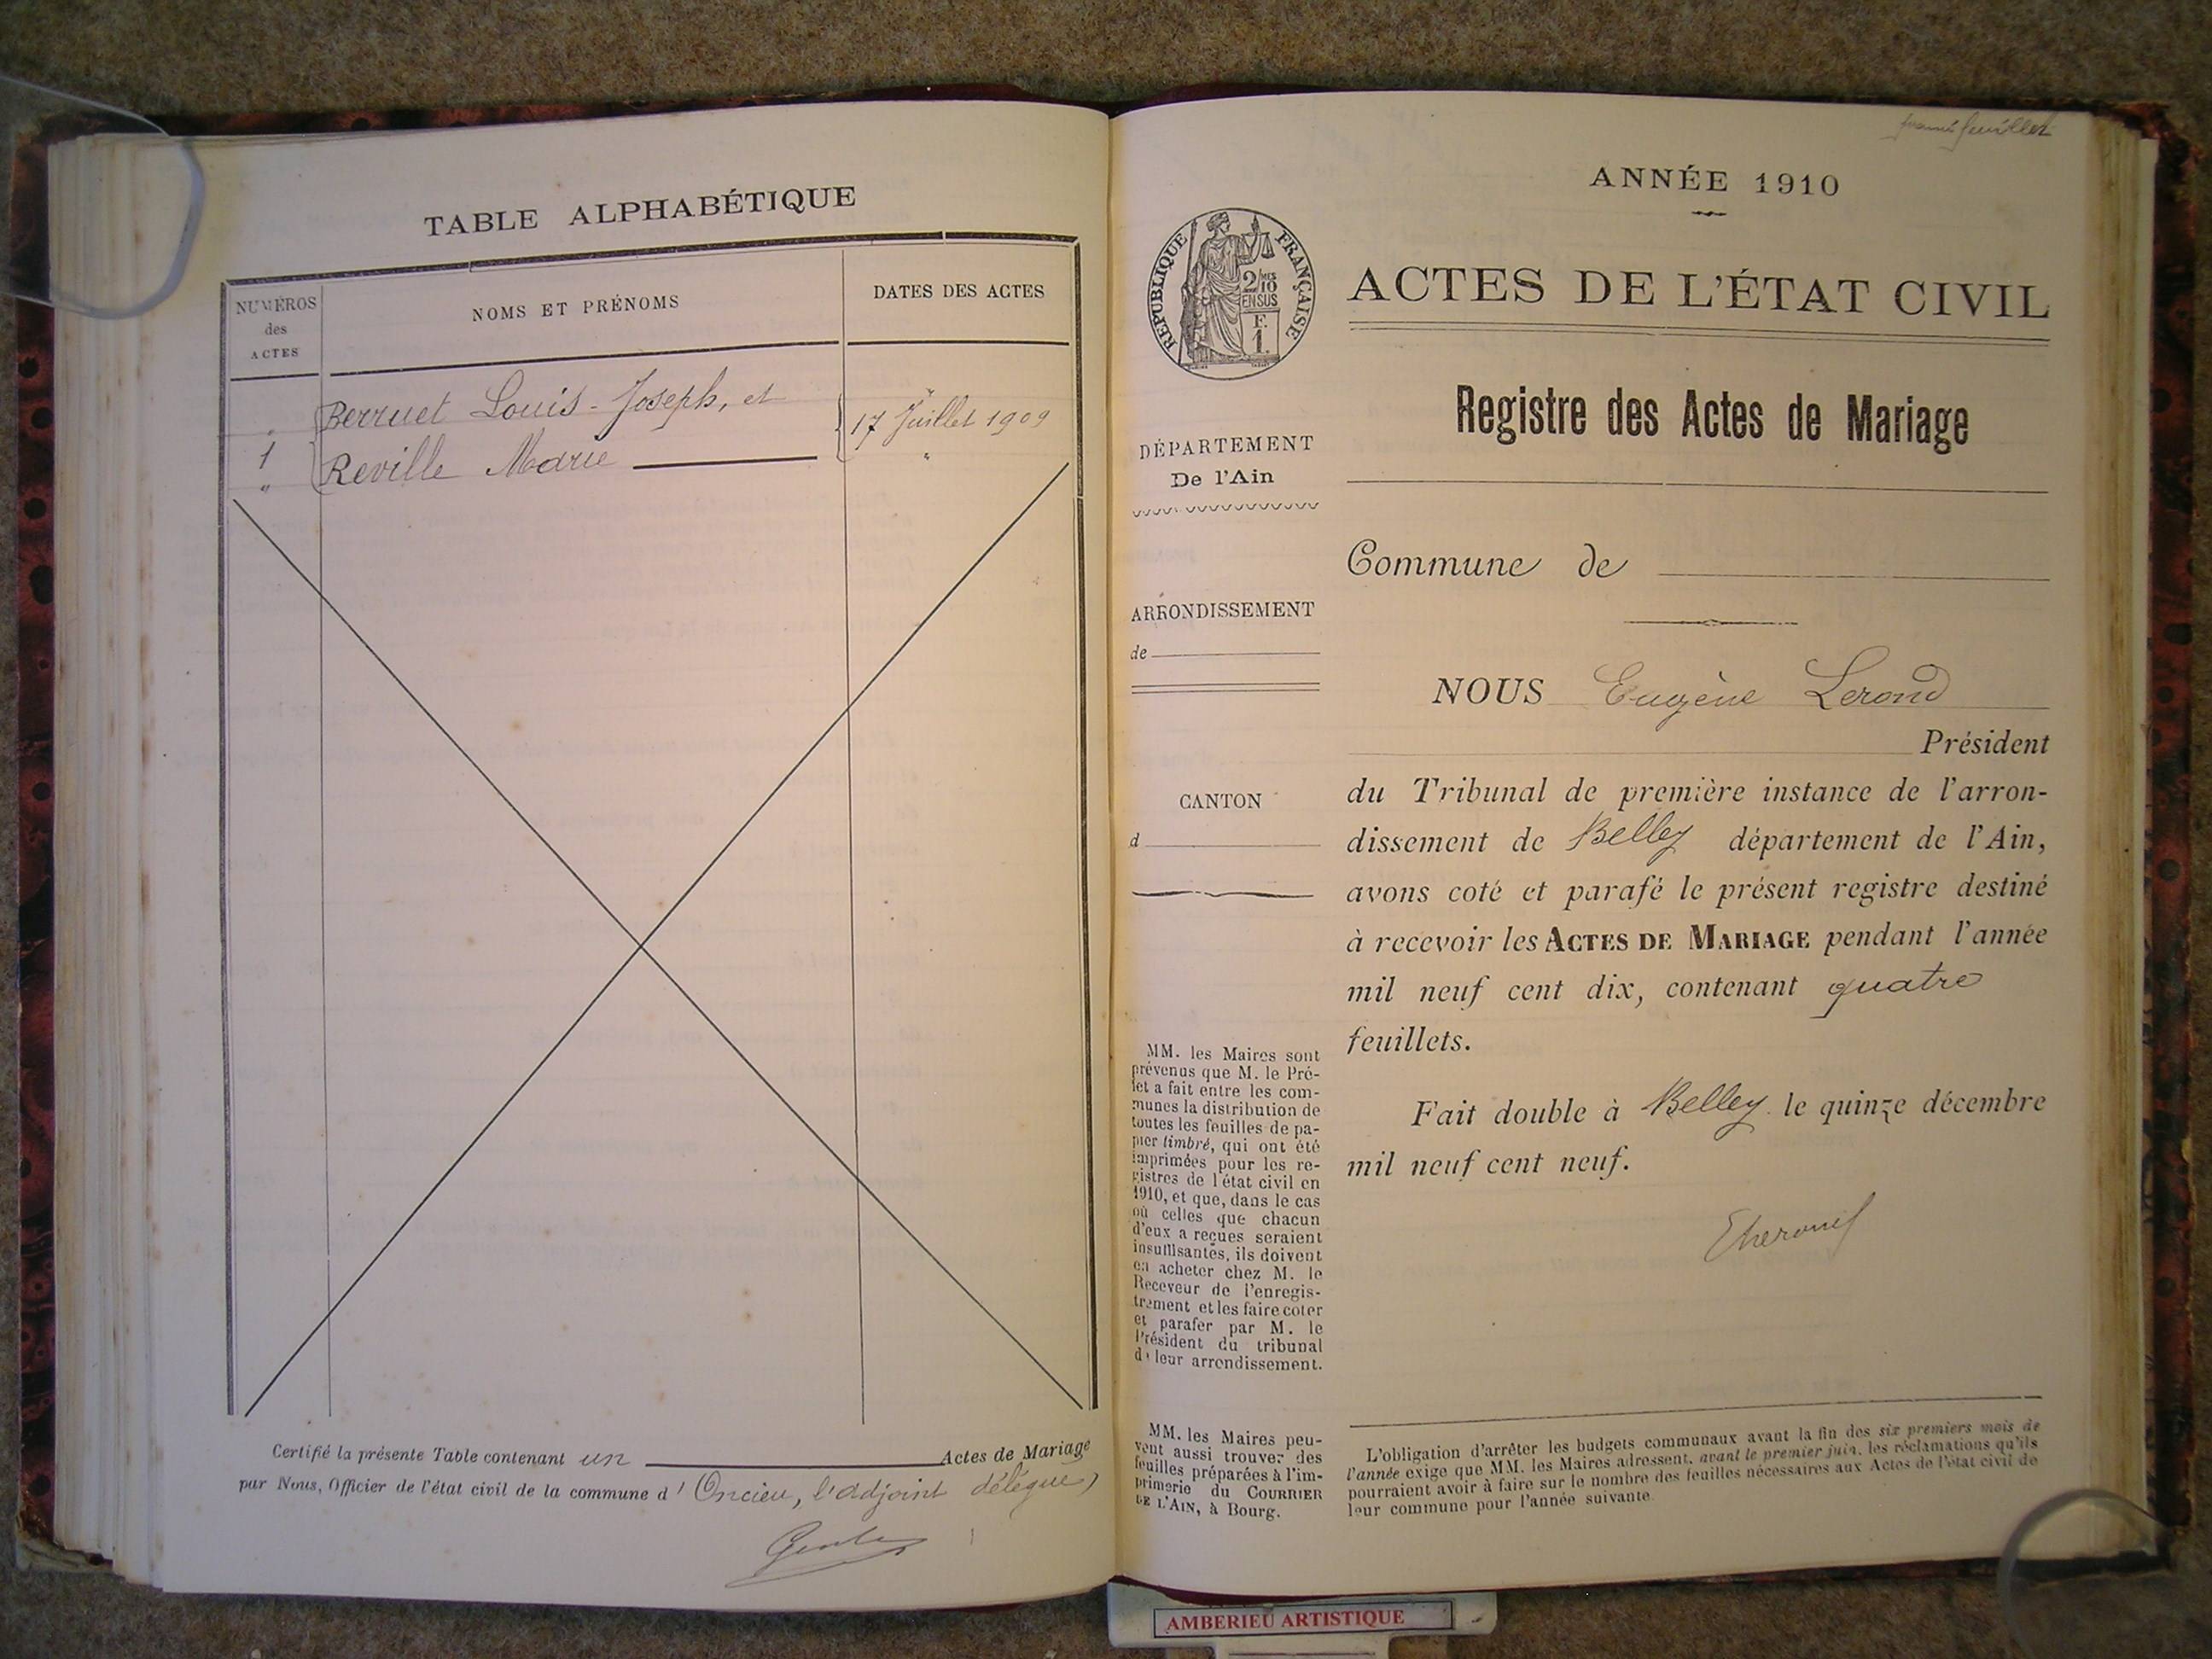 TABLE ALPHABÉTIQUE
NUMÉROS
des
ACTES
NOMS ET PRÉNOMS
DATES DES ACTES
Berruet Louis-Joseph, et
1
17 Juillet 1909
" Reville Marie "
Certifié la présente Table contenant un Actes de Mariage
par Nous, Officier de l'état civil de la commune d'Oncieu, l'adjoint délégué,
premier feuillet
ANNÉE 1910
RÉPUBLIQUE FRANÇAISE
2/10 MES
EN SUS
F.
1.
ACTES DE L'ÉTAT CIVIL
Registre des Actes de Mariage
DÉPARTEMENT
De l'Ain
Commune de
ARRONDISSEMENT
de
NOUS Eugène Lerond
Président
CANTON
d
du Tribunal de première instance de l'arron-
dissement de Belley département de l'Ain,
avons coté et parafé le présent registre destiné
à recevoir les ACTES DE MARIAGE pendant l'année
mil neuf cent dix, contenant quatre
feuillets.
Fait double à Belley le quinze décembre
mil neuf cent neuf.
MM. les Maires sont
prévenus que M. le Pré-
fet a fait entre les com-
munes la distribution de
toutes les feuilles de pa-
pier timbré, qui ont été
imprimées pour les re-
gistres de l'état civil en
1910, et que, dans le cas
où celles que chacun
d'eux a reçues seraient
insuffisantes, ils doivent
en acheter chez M. le
Receveur de l'enregis-
trement et les faire coter
et parafer par M. le
Président du tribunal
de leur arrondissement.
MM. les Maires peu-
vent aussi trouver des
feuilles préparées à l'im-
primerie du COURRIER
DE L'AIN, à Bourg.
L'obligation d'arrêter les budgets communaux avant la fin des six premiers mois de
l'année exige que MM. les Maires adressent, avant le premier juin, les réclamations qu'ils
pourraient avoir à faire sur le nombre des feuilles nécessaires aux Actes de l'état civil de
leur commune pour l'année suivante.
AMBERIEU ARTISTIQUE